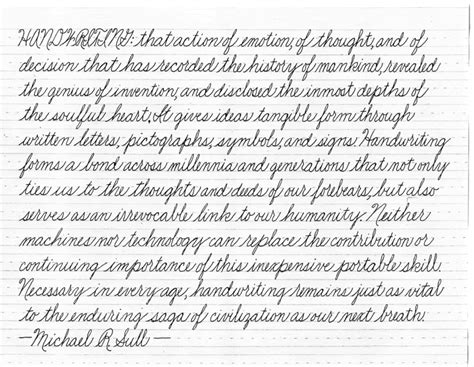 HANDWRITING: that action of emotion, of thought, and of
decision that has recorded the history of mankind, revealed
the genius of invention, and disclosed the inmost depths of
the soulful heart. It gives ideas tangible form through
written letters, pictographs, symbols, and signs. Handwriting
forms a bond across millennia and generations that not only
ties us to the thoughts and deeds of our forebears, but also
serves as an irrevocable link to our humanity. Neither
machines nor technology can replace the contribution or
continuing importance of this inexpensive portable skill.
Necessary in every age, handwriting remains just as vital
to the enduring saga of civilization as our next breath.
—Michael R Sull—